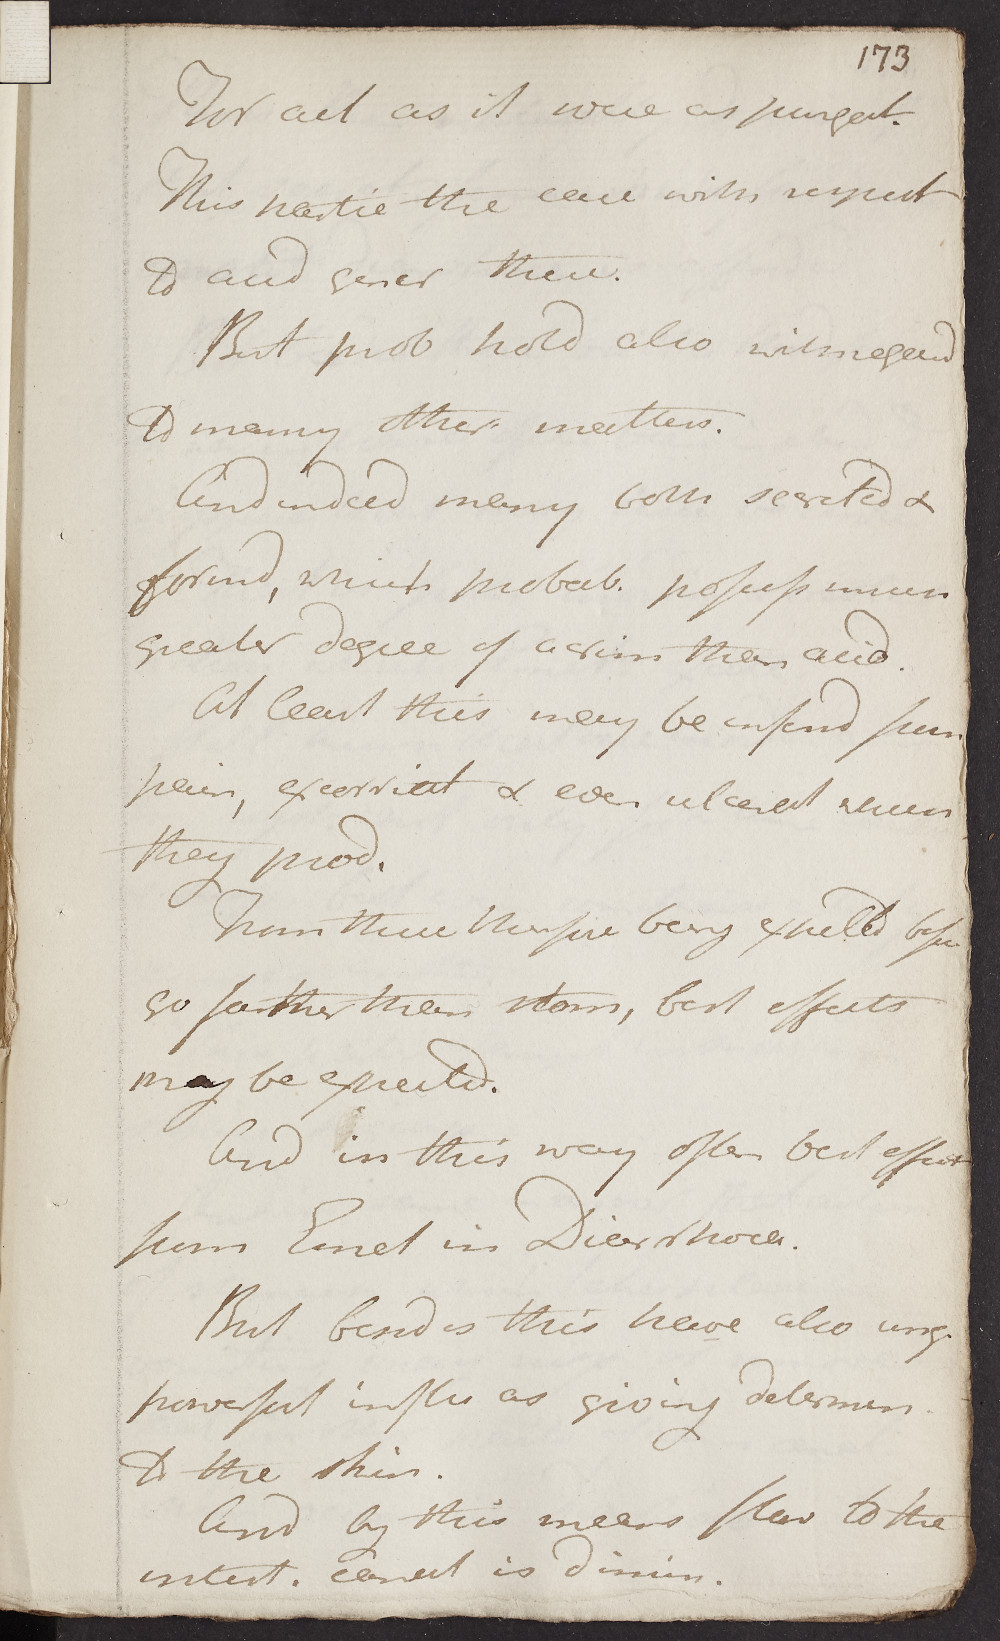 173
For act as it were as purgat.
This partic the case with respect
to acid gener there.
But prob hold also with regard
to many other matters.
And indeed many both secreted &
formd, which probab. possess much
greater degree of acrim than acid.
At least this may be inferd from
pain, excoriat & even ulcerat which
they prod.
From these therefore being expelld befor
go farther than stom, best effects
may be expected.
And in this way often best effect
from Emet in Diarrhoea.
But besides this have also
powerful influ as giving determin.
to the skin.
And by this means flow to the
intest. canal is dimin.